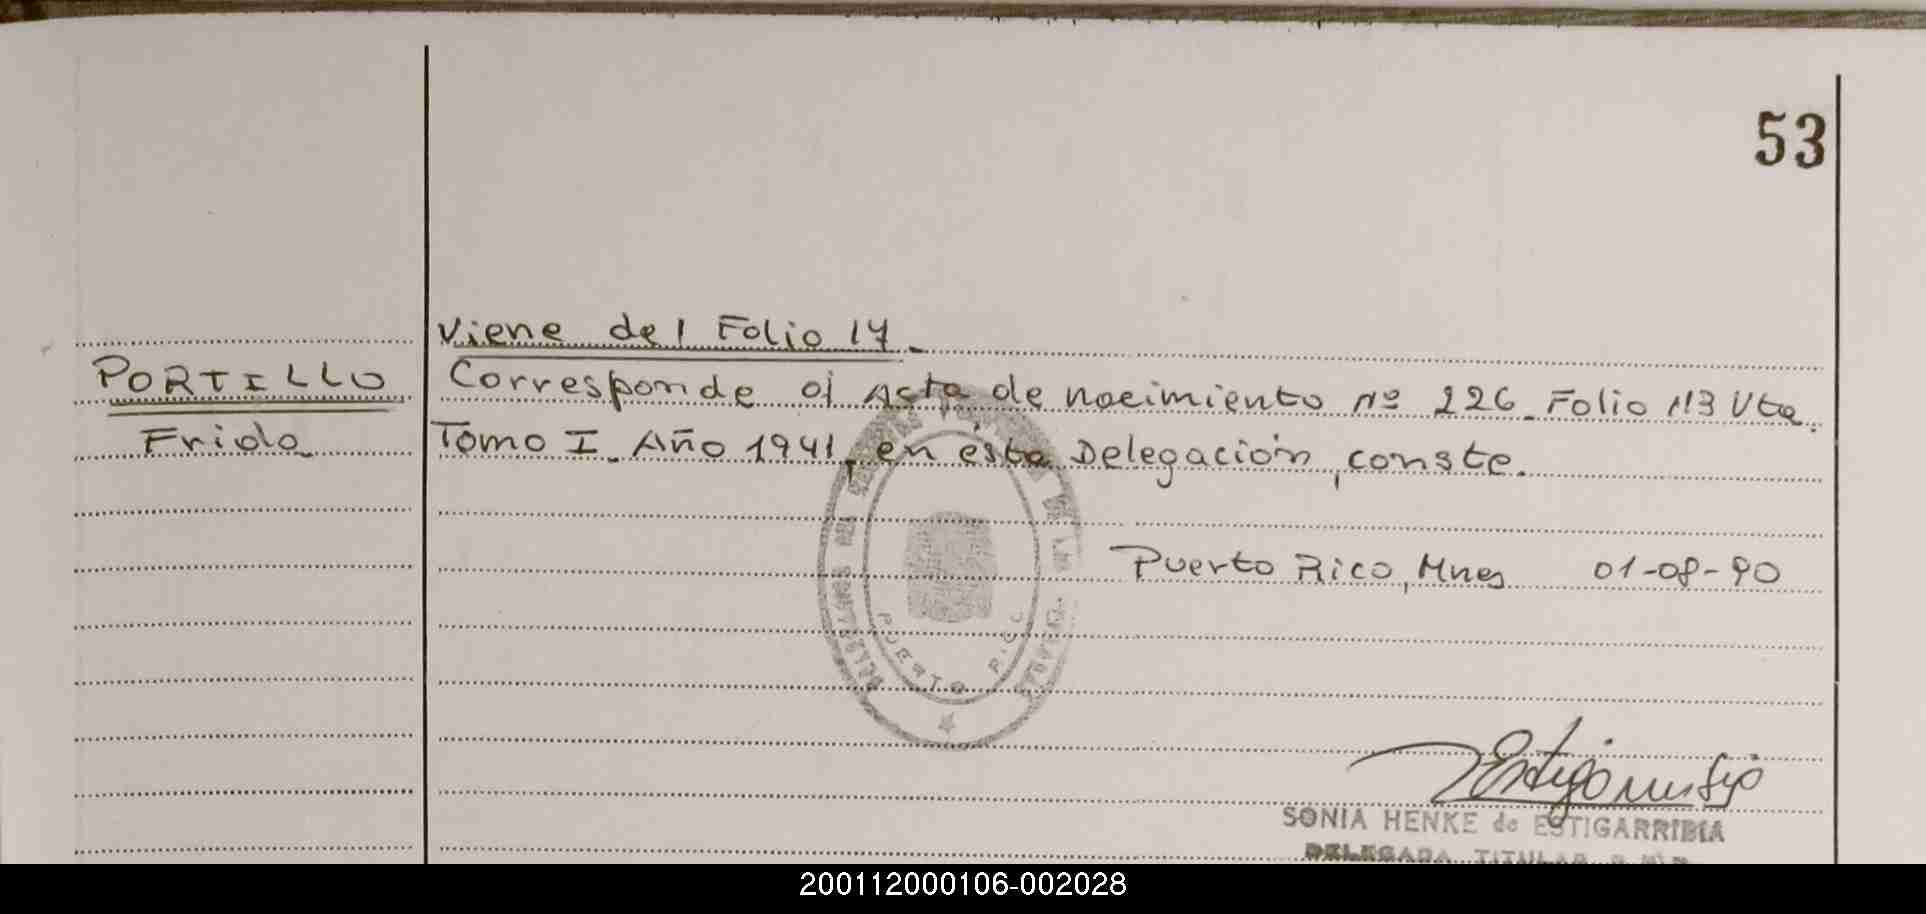 53
Viene del Folio 17.
PORTILLO
Corresponde al Acta de nacimiento nº 226. Folio 113 Vta.
Frida
Tomo I. Año 1941, en ésta Delegación, conste.
PUERTO RICO
Puerto Rico, Mnes 01-08-90
SONIA HENKE de ESTIGARRIBIA
DELEGADA TITULAR
200112000106-002028